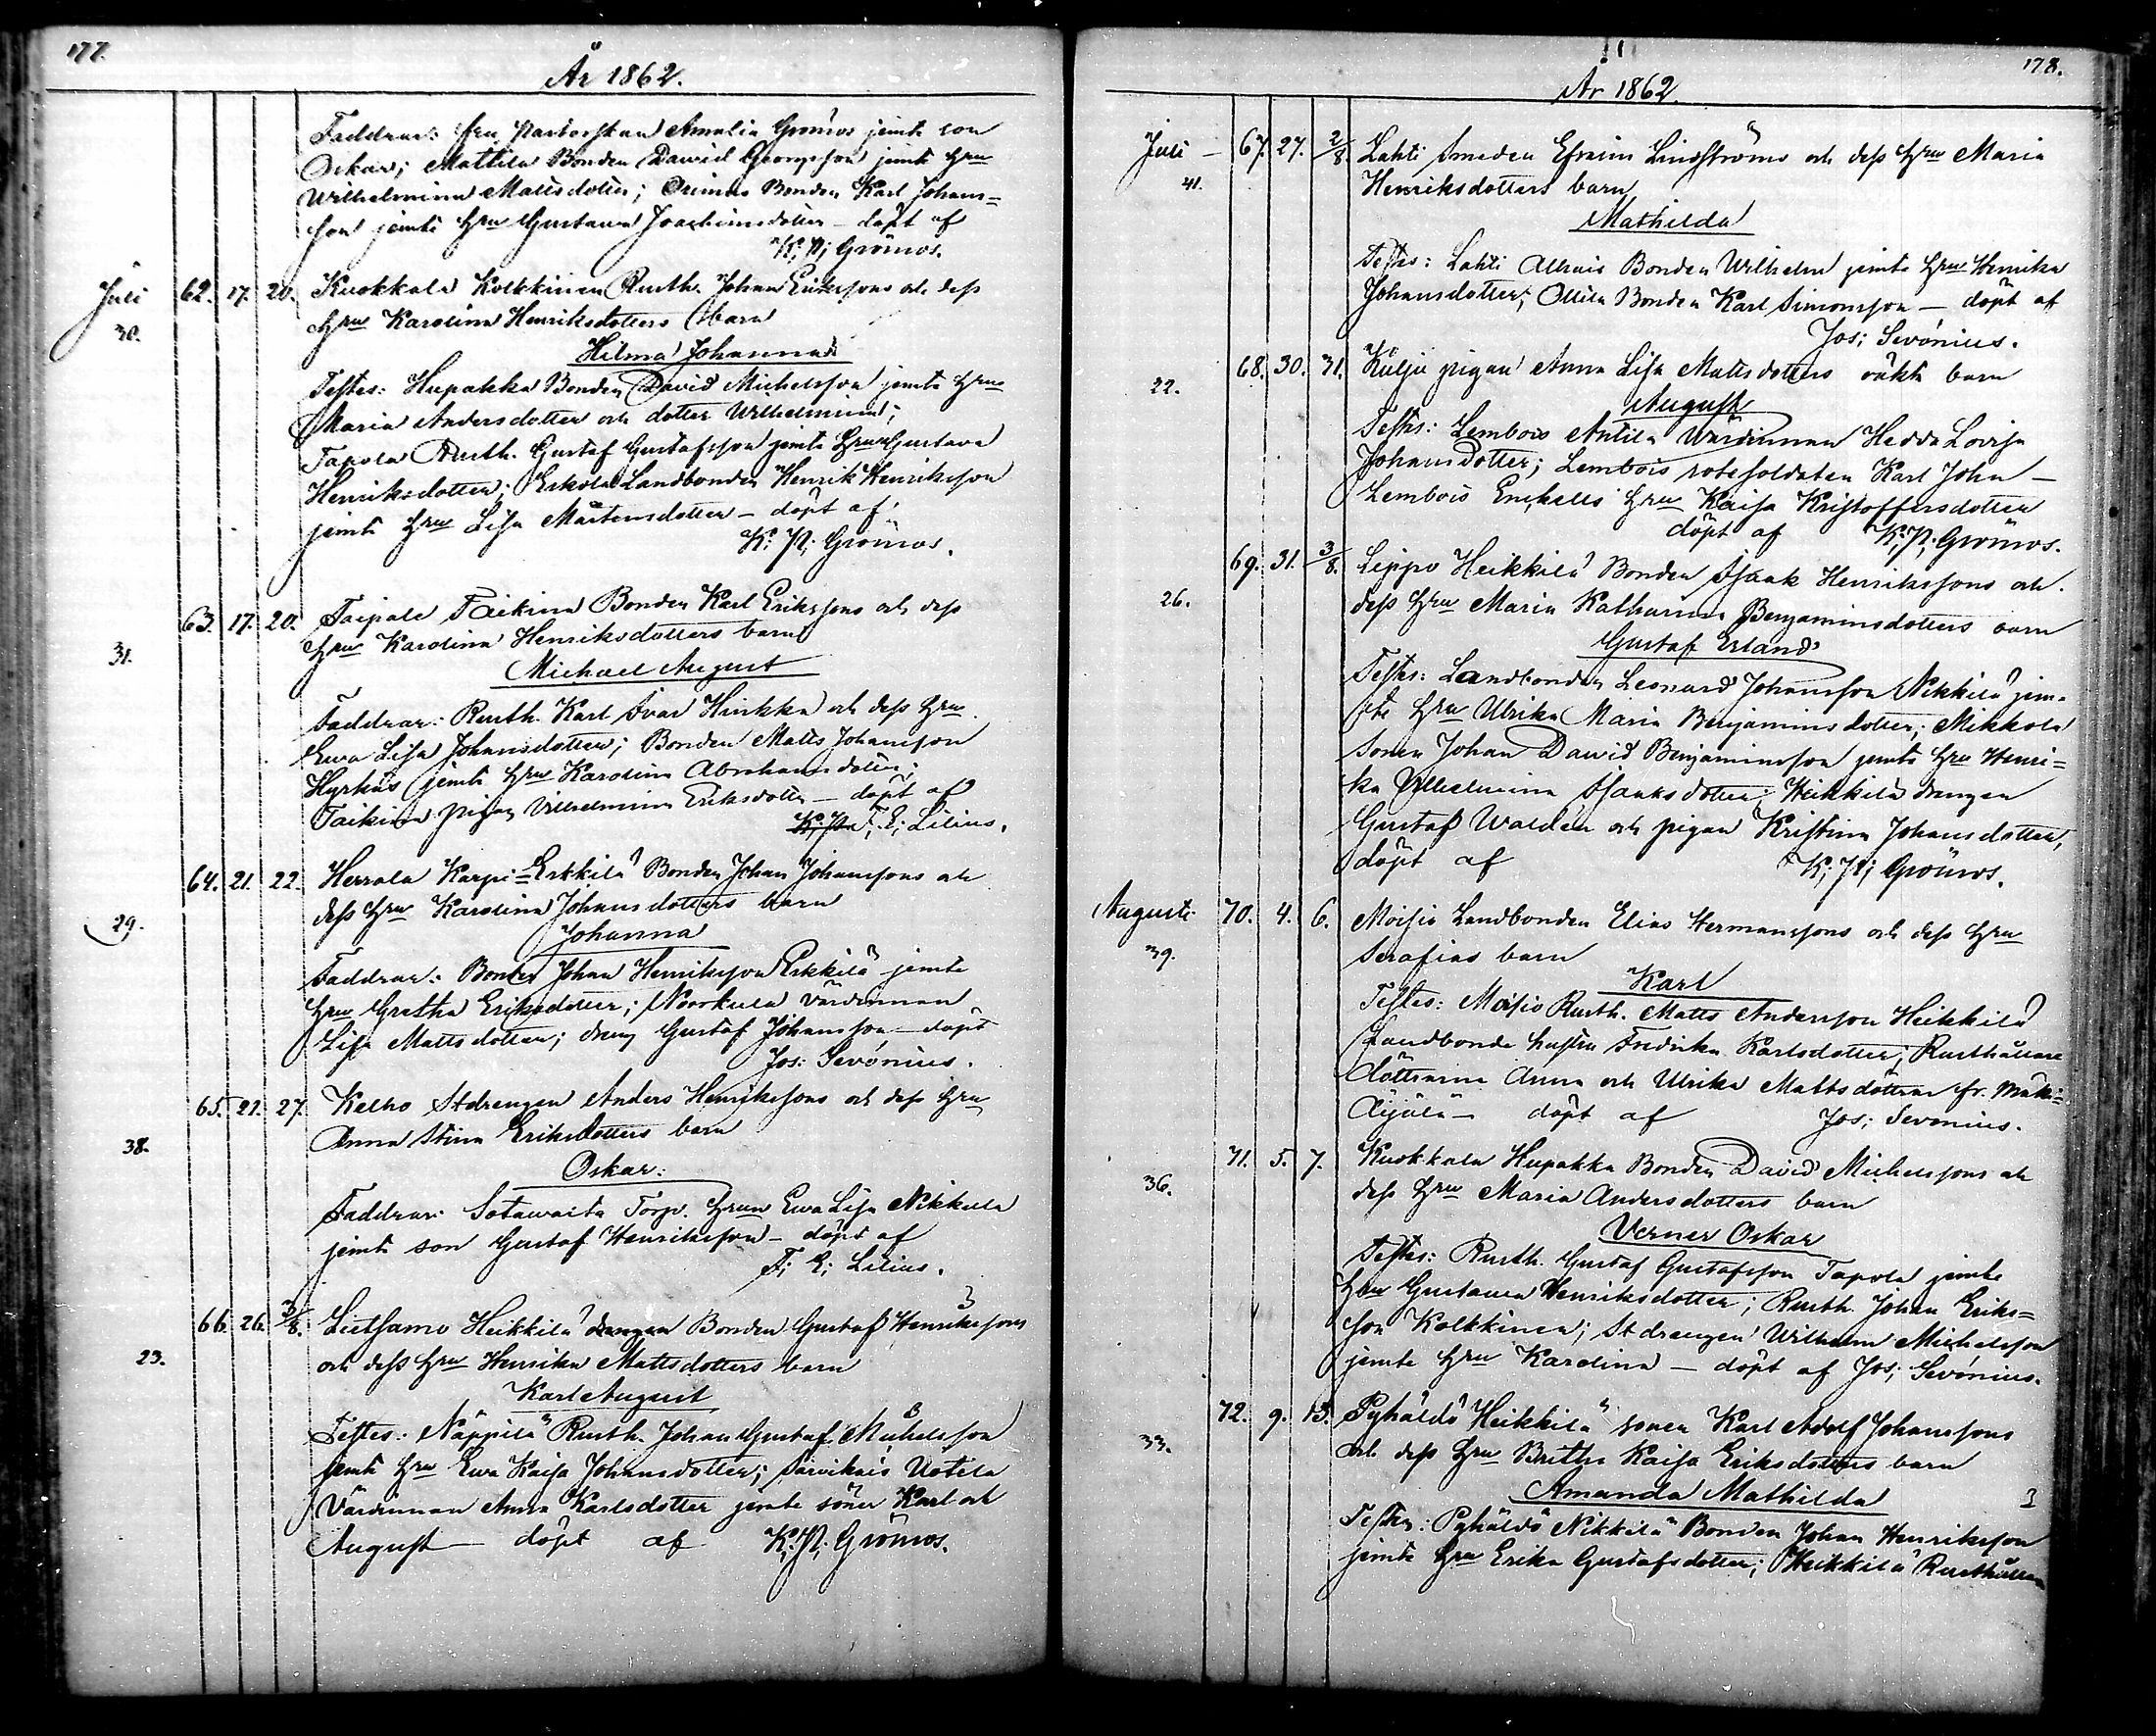 177.
År 1862.
Faddrar: fru Pastorskan Amalia Grönros jemte son
Oskar; Mattila Bonden Dawid Georgsson jemte hru
Wilhelmina Mattsdotter; Bonden Karl Johans=
son jemte hru Gustawa Joachimsdotter – döpt af
K; P; Grönros.
Juli 62. 17. 20. Kuokkala Kolkkinen Rusth. Johan Erikssons och dess
30. hru Karolina Henriksdotters barn
Hilma Johanna
Testes: Hupakka Bonden David Michelsson jemte hru
Maria Andersdotter och dotter Wilhelmina;
Tapola Rusth. Gustaf Gustafsson jemte hru Gustava
Henriksdotter; Eskola Landbonden Henrik Henriksson
jemte hru Lisa Mårtensdotter – döpt af
K; P; Grönros.
63. 17. 20. Taipale Taikina Bonden Karl Erikssons och dess
31. hru Karolina Henriksdotters barn
Michael August
Faddrar: Rusth. Karl Ivar Hinkka och dess hru
Ewa Lisa Johansdotter; Bonden Matts Johansson
Hyrkäs jemte hru Karolina Abrahamsdotter;
Taikina pigan Vilhelmina Eriksdotter – döpt af
K; P. F; E; Lilius.
64. 21. 22. Herrala Karpi=Erkkilä Bonden Johan Johanssons och
29. dess hru Karolina Johansdotters barn
Johanna
Faddrar: Bonden Johan Henriksson Erkkilä jemte
hru Gretha Eriksdotter; värdinnan
Lisa Mattsdotter; dreng Gustaf Johansson – döpt
Jos: Sevónius.
65. 21. 27. Kelho Stdrengen Anders Henrikssons och dess hru
38. Anna Stina Eriksdotters barn
Oskar.
Faddrar: Sotawaita Torp. hrun Ewa Lisa Nikkula
jemte son Gustaf Henriksson – döpt af
F; E; Lilius.
66. 26. 3/8. Lietsamo Heikkilä drengen Bonden Gustaf Henrikssons
23. och dess hru Henrika Mattsdotters barn
Karl August
Testes: Näppilä Rusth. Johan Gustaf Michelsson
jemte hru Ewa Kaisa Johansdotter; Uotila
Värdinnan Anna Karlsdotter jemte söner Karl och
August – döpt af K; P; Grönros.
178.
År 1862.
Juli – 67. 27. 2/8. Lahti Smeden Efraim Lindströms och dess hru Maria
41. Henriksdotters barn
Mathilda
Testes: Lahti Bonden Wilhelm jemte hru Henrika
Johansdotter; Ollila Bonden Karl Simonsson – döpt af
Jos; Sevónius.
68. 30. 31. Kulju pigan Anna Lisa Mattsdotters oäkta barn
22.
August
Testes: Lembois Antila Wärdinnan Hedda Lovisa
Johansdotter; Lembois rotesoldaten Karl John –
Lembois Enckells hru Kaisa Kristoffersdotter
döpt af K; P; Grönros.
69. 31. 3/8. Lippo Heikkilä Bonden Isaak Henrikssons och
26. dess hru Maria Katharina Benjaminsdotters barn
Gustaf Erland
Testes: Landbonden Leonard Johansson Nikkilä jem=
te hru Ulrika Maria Benjaminsdotter; Mikkola
Sonen Johan Dawid Benjaminsson jemte hru Henri=
ka Wilhelmina Isaksdotter; Heikkilä drengen
Gustaf Walden och pigan Kristina Johansdotter,
döpt af K; P; Grönros.
Augusti 70. 4. 6. Moisio Landbonden Elias Hermanssons och dess hru
39. Serafias barn
Karl
Testes: Moisio Rusth. Matts Andersson Heikkilä
Landbonde hustru Fredrika Karlsdotter; Rusthållare
döttrarna Anna och Ulrika Mattsdöttrar fr. Mäki=
Äijälä – döpt af Jos; Sevonius.
71. 5. 7. Kuokkala Hupakka Bonden David Michelssons och
36. dess hru Maria Andersdotters barn
Verner Oskar
Testes: Rusth. Gustaf Gustafsson Tapola jemte
hru Gustawa Henriksdotter; Rusth. Johan Eriks=
son Kolkkinen; Stdrengen Wilhelm Michelsson
jemte hru Karolina – döpt af Jos; Sevónius.
72. 9. 13. Pyhäldö Heikkilä sonen Karl Adolf Johanssons
33. och dess hru Britha Kaisa Eriksdotters barn
Amanda Mathilda
Testes: Pyhäldö Nikkilä Bonden Johan Henriksson
jemte hru Erika Gustafsdotter; Heikkilä Rusthållare